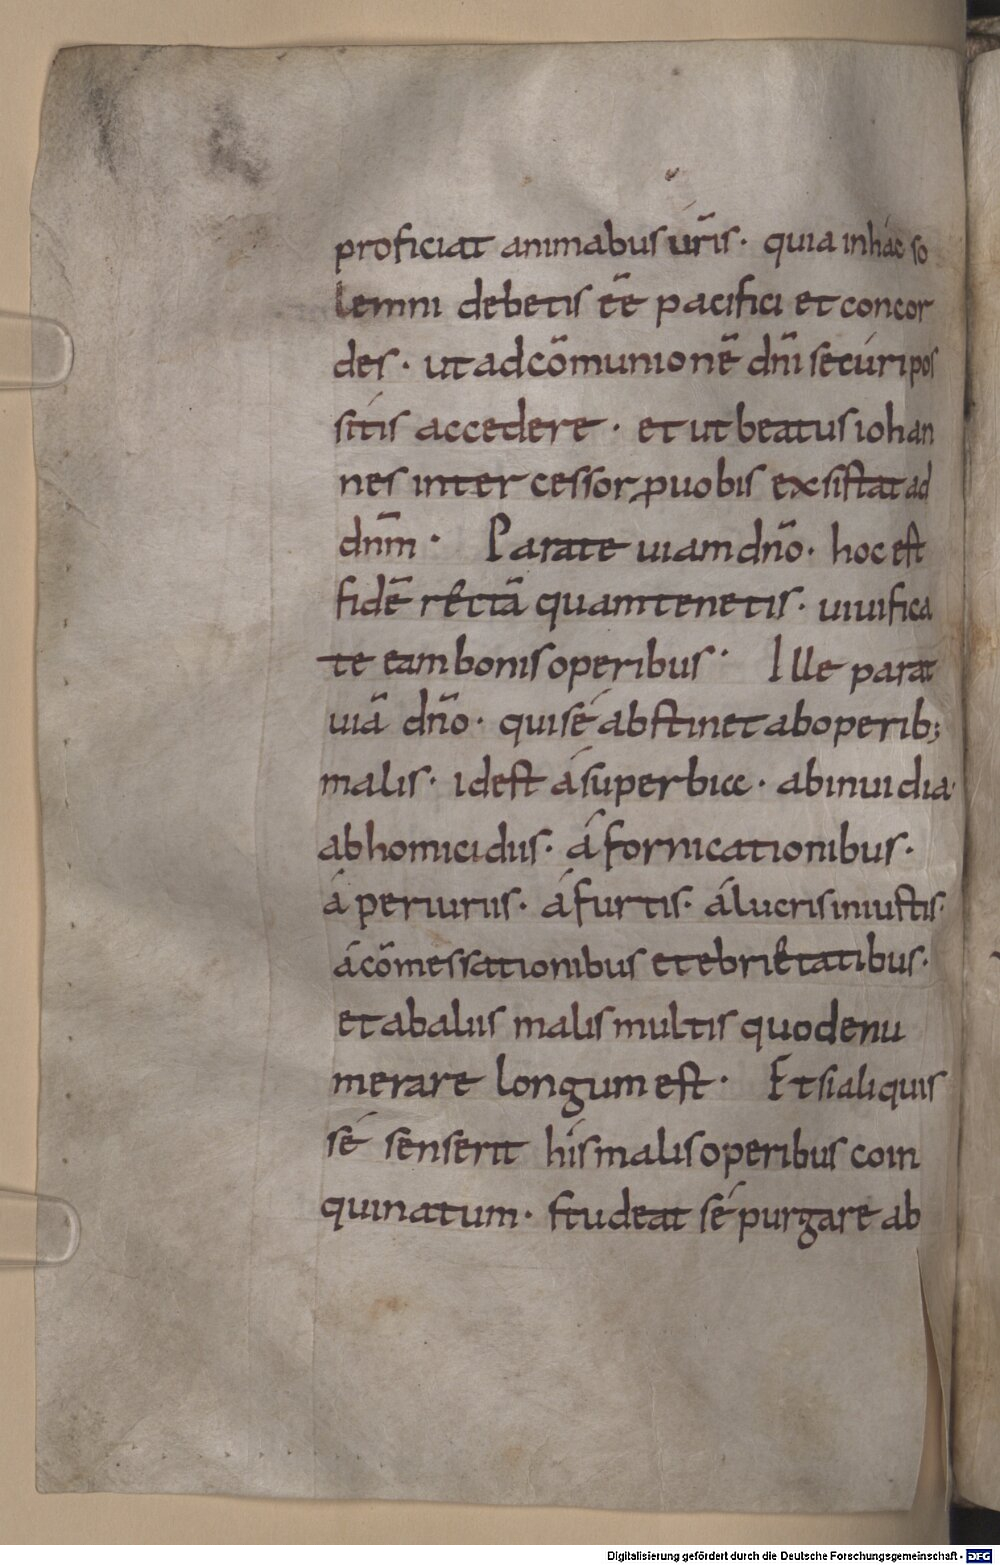 proficiat animabus ur̃is · quia in hác so
lemni debetis ēē pacifici et concor
des · ut ad cōmunionē dñi secúri pos
sitis accedere · et ut beatus iohan
nes inter cessor ꝓ uobis exsistat ad
dnm̄ · Parate uiam dño · hoc est
fidē rectā quam tenetis · uiuifica
te eam bonis operibus · Ille parat
uiā dño · qui sé abstinet ab operib;
malis · id est á superbia · ab inuidia ·
ab homicidiis · á fornicationibus ·
á periuriis · á furtis · á lucris iniustis ·
á cōmessationibus et ebrietatibus ·
et ab aliis malis multis quod enu
merare longum est · Et si aliquis
sé senserit hís malis operibus coin
quinatum · studeat sé purgare ab
Digitalisierung gefördert durch die Deutsche Forschungsgemeinschaft - DFG